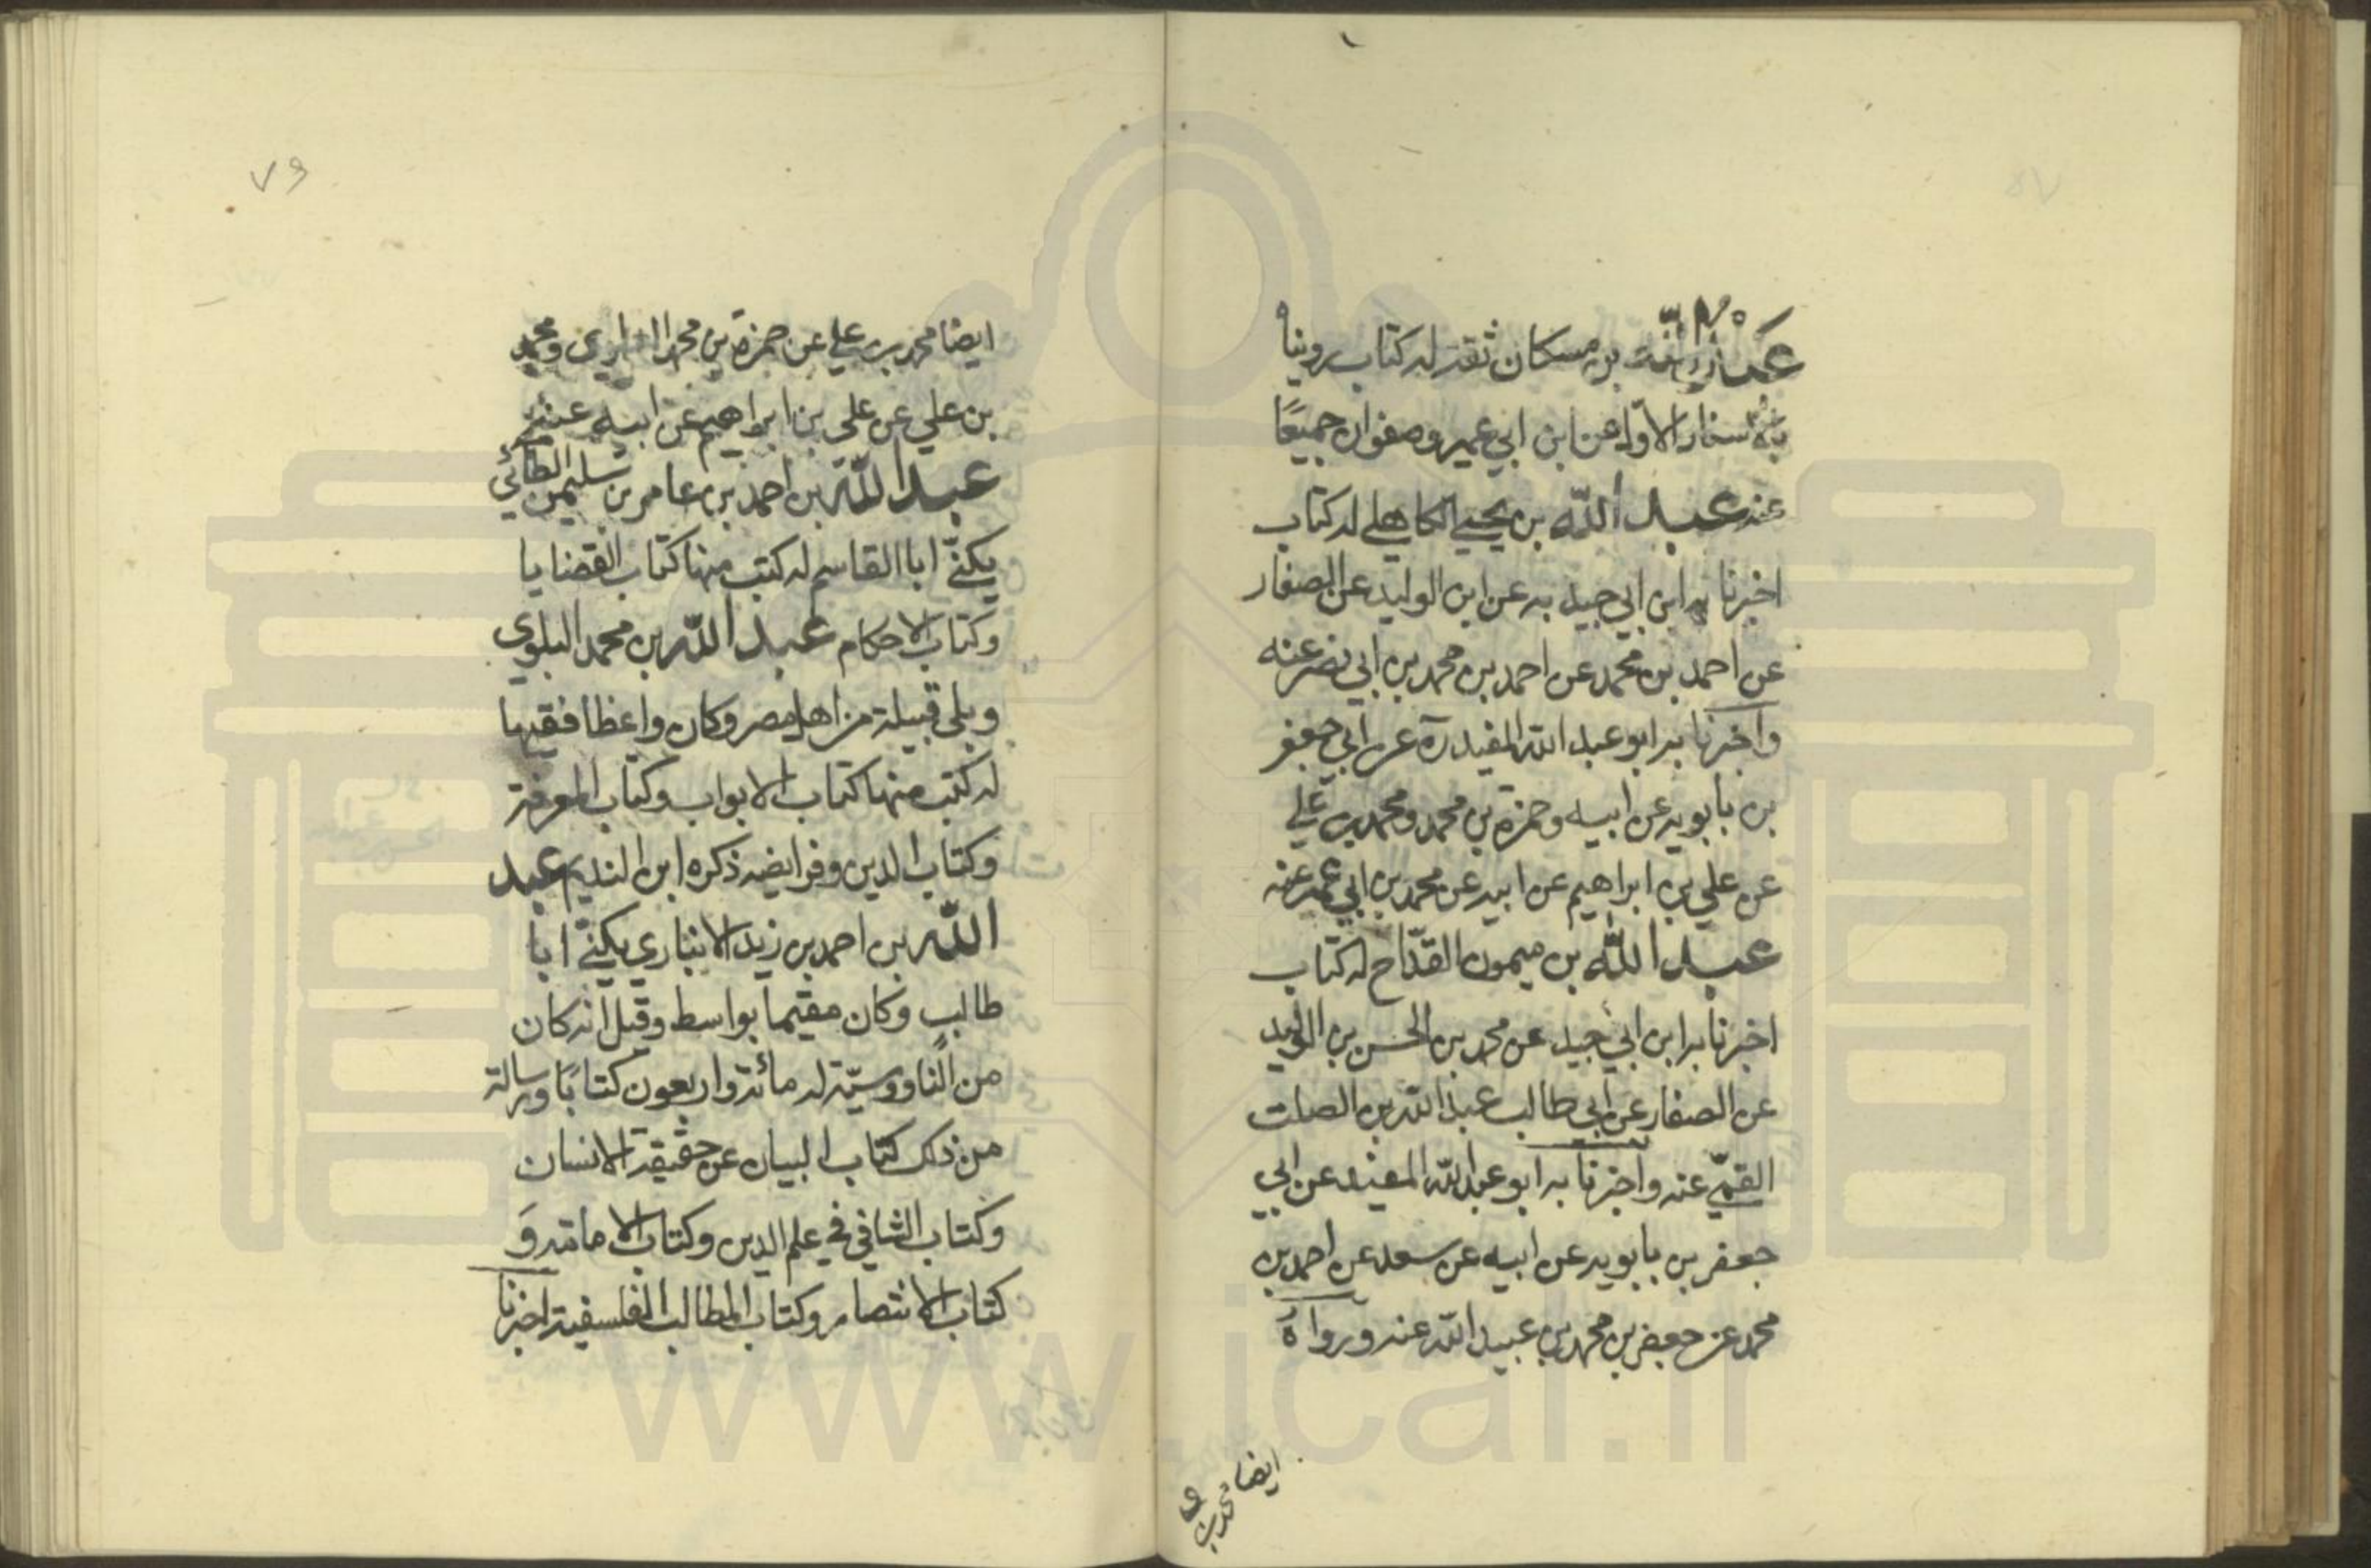 عبد الله بن مسكان ثقة له كتاب رويناه
بالاسناد الاول عن ابن ابي عمير وصفوان جميعًا
عنه عبد الله بن يحيى الكاهلي له كتاب
اخبرنا به ابن ابي جيد به عن ابن الوليد عن الصفار
عن احمد بن محمد عن احمد بن محمد بن ابي نصر عنه
واخبرنا به ابو عبد الله المفيد ره عن ابي جعفر
بن بابويه عن ابيه وحمزة بن محمد ومحمد بن علي
عن علي بن ابراهيم عن ابيه عن محمد بن ابي عمير عنه
عبد الله بن ميمون القدّاح له كتاب
اخبرنا به ابن ابي جيد عن محمد بن الحسن بن الوليد
عن الصفار عن ابي طالب عبد الله بن الصلت
القمّي عنه واخبرنا به ابو عبد الله المفيد عن ابي
جعفر بن بابويه عن ابيه عن سعد عن احمد بن
محمد عن جعفر بن محمد بن عبيد الله عنه ورواه
ايضا محمد بن
٧٦
ايضا محمد بن علي عن حمزة بن محمد العلوي ومحمد
بن علي عن علي بن ابراهيم عن ابيه عنه
عبد الله بن احمد بن عامر بن سليمن الطائي
يكنّى ابا القاسم له كتب منها كتاب القضايا
وكتاب الاحكام عبد الله بن محمد البلوي
وبلي قبيلة من اهل مصر وكان واعظا فقيها
له كتب منها كتاب الابواب وكتاب المعرفة
وكتاب الدين وفرايضه ذكره ابن النديم عبد
الله بن احمد بن زيد الانباري يكنّى ابا
طالب وكان مقيما بواسط وقيل انه كان
من الناووسيّة له مائة واربعون كتابًا ورسالة
من ذلك كتاب البيان عن حقيقة الانسان
وكتاب الشافي في علم الدين وكتاب الامامة وَ
كتاب الانتصار وكتاب المطالب الفلسفية اخبرنا
www.ical.ir